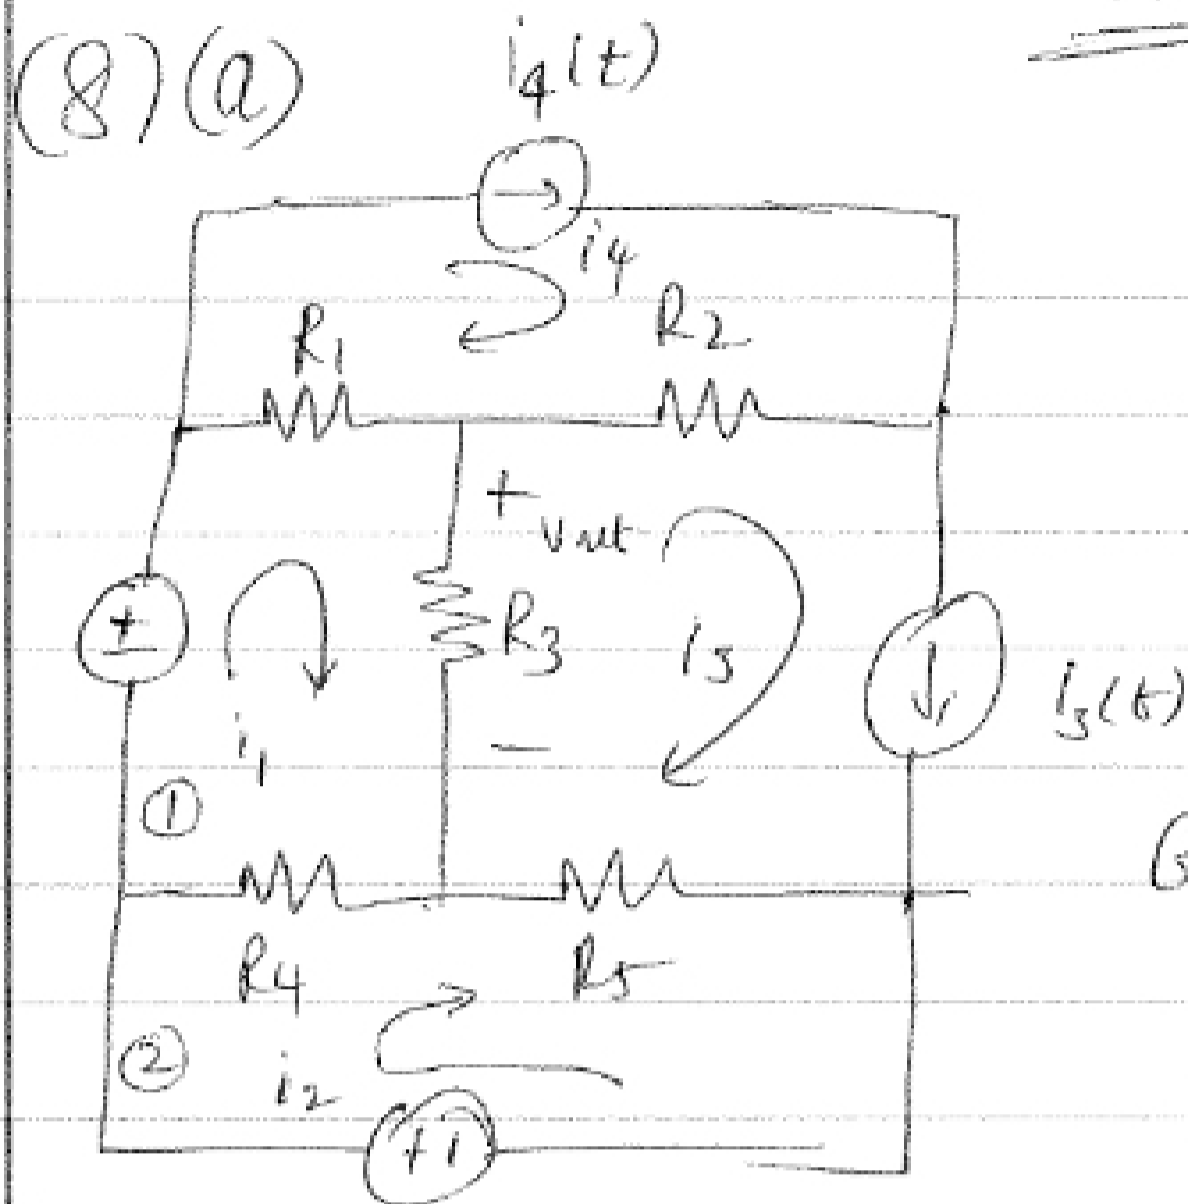 (8) (a)
i4(t)
i4
R1
R2
+
Vout
±
R3
i3
i3(t)
i1
−
①
R4
R5
②
i2